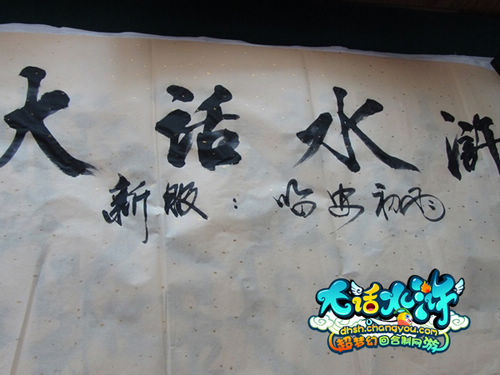 大话水浒
新服：临安初雨
大话水浒
dhsh.changyou.com
超梦幻回合制网游